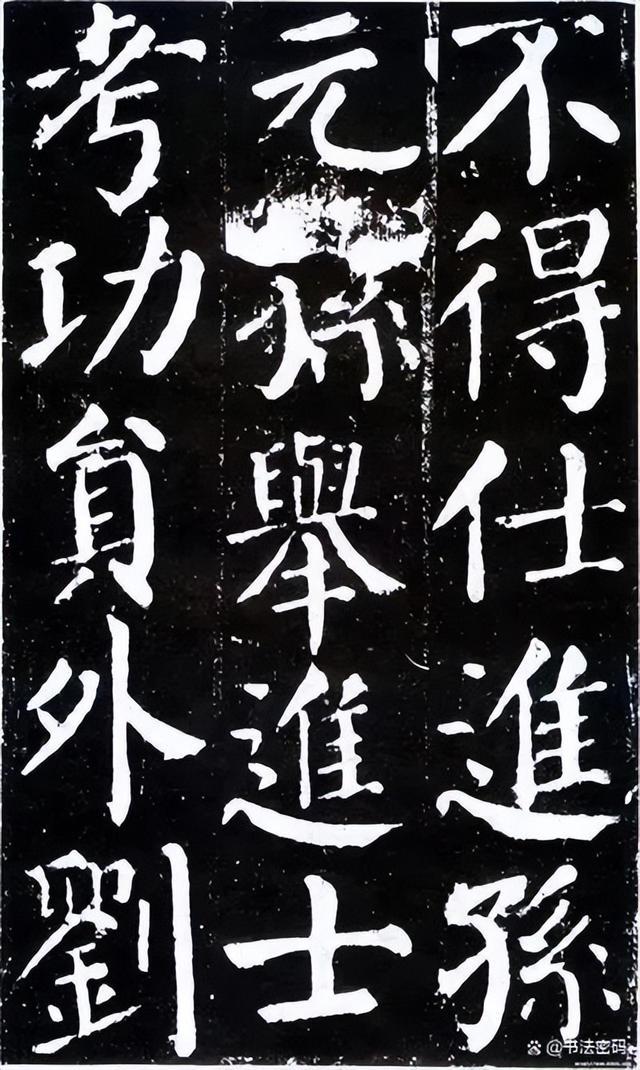 不得仕進孫
元孫舉進士
考功員外劉
@书法密码